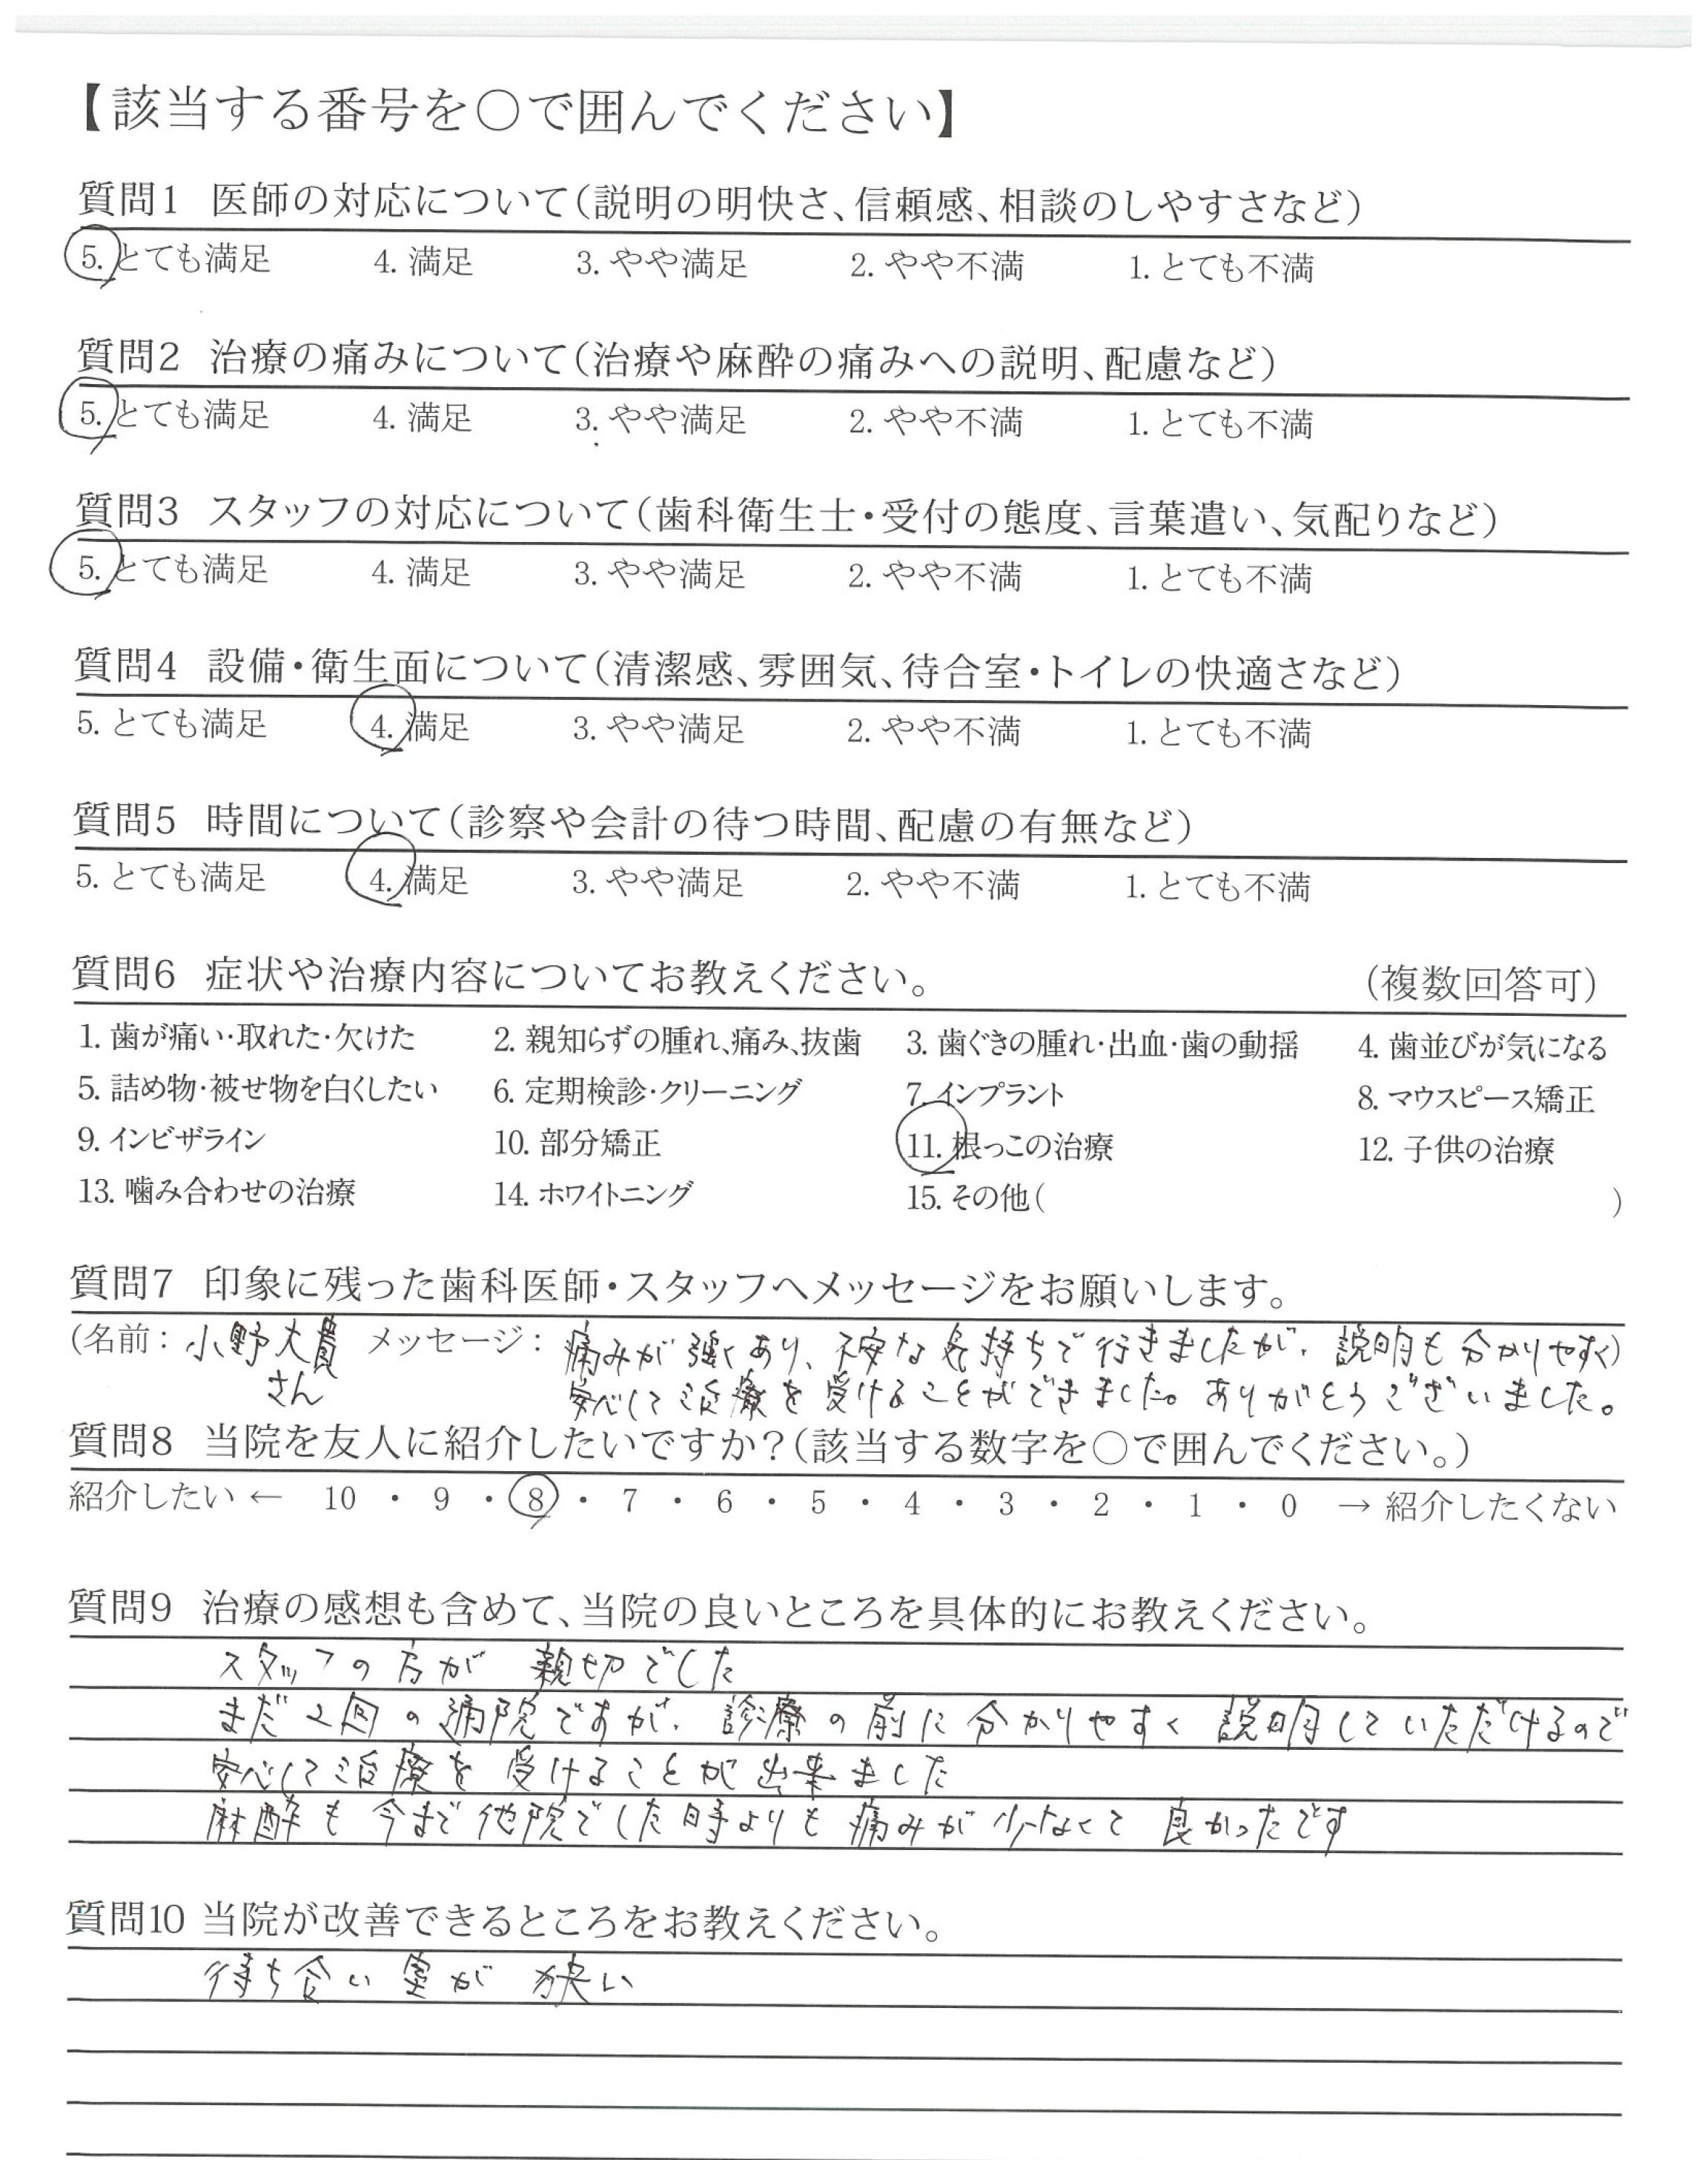 【該当する番号を〇で囲んでください】
質問1 医師の対応について（説明の明快さ、信頼感、相談のしやすさなど）
5. とても満足 4. 満足 3. やや満足 2. やや不満 1. とても不満
質問2 治療の痛みについて（治療や麻酔の痛みへの説明、配慮など）
5. とても満足 4. 満足 3. やや満足 2. やや不満 1. とても不満
質問3 スタッフの対応について（歯科衛生士・受付の態度、言葉遣い、気配りなど）
5. とても満足 4. 満足 3. やや満足 2. やや不満 1. とても不満
質問4 設備・衛生面について（清潔感、雰囲気、待合室・トイレの快適さなど）
5. とても満足 4. 満足 3. やや満足 2. やや不満 1. とても不満
質問5 時間について（診察や会計の待つ時間、配慮の有無など）
5. とても満足 4. 満足 3. やや満足 2. やや不満 1. とても不満
質問6 症状や治療内容についてお教えください。 （複数回答可）
1. 歯が痛い・取れた・欠けた 2. 親知らずの腫れ、痛み、抜歯 3. 歯ぐきの腫れ・出血・歯の動揺 4. 歯並びが気になる
5. 詰め物・被せ物を白くしたい 6. 定期検診・クリーニング 7. インプラント 8. マウスピース矯正
9. インビザライン 10. 部分矯正 11. 根っこの治療 12. 子供の治療
13. 噛み合わせの治療 14. ホワイトニング 15. その他（ ）
質問7 印象に残った歯科医師・スタッフへメッセージをお願いします。
（名前：小野大貴 メッセージ：痛みが強くあり、不安な気持ちで行きましたが、説明も分かりやすく）
さん 安心して治療を受けることができました。ありがとうございました。
質問8 当院を友人に紹介したいですか？（該当する数字を〇で囲んでください。）
紹介したい ← 10 ・ 9 ・ 8 ・ 7 ・ 6 ・ 5 ・ 4 ・ 3 ・ 2 ・ 1 ・ 0 → 紹介したくない
質問9 治療の感想も含めて、当院の良いところを具体的にお教えください。
スタッフの方が 親切でした
まだ2回の通院ですが、診療の前に分かりやすく 説明していただけるので
安心して治療を受けることが出来ました
麻酔も今まで他院でした時よりも痛みが少なくて 良かったです
質問10 当院が改善できるところをお教えください。
待ち合い室が 狭い